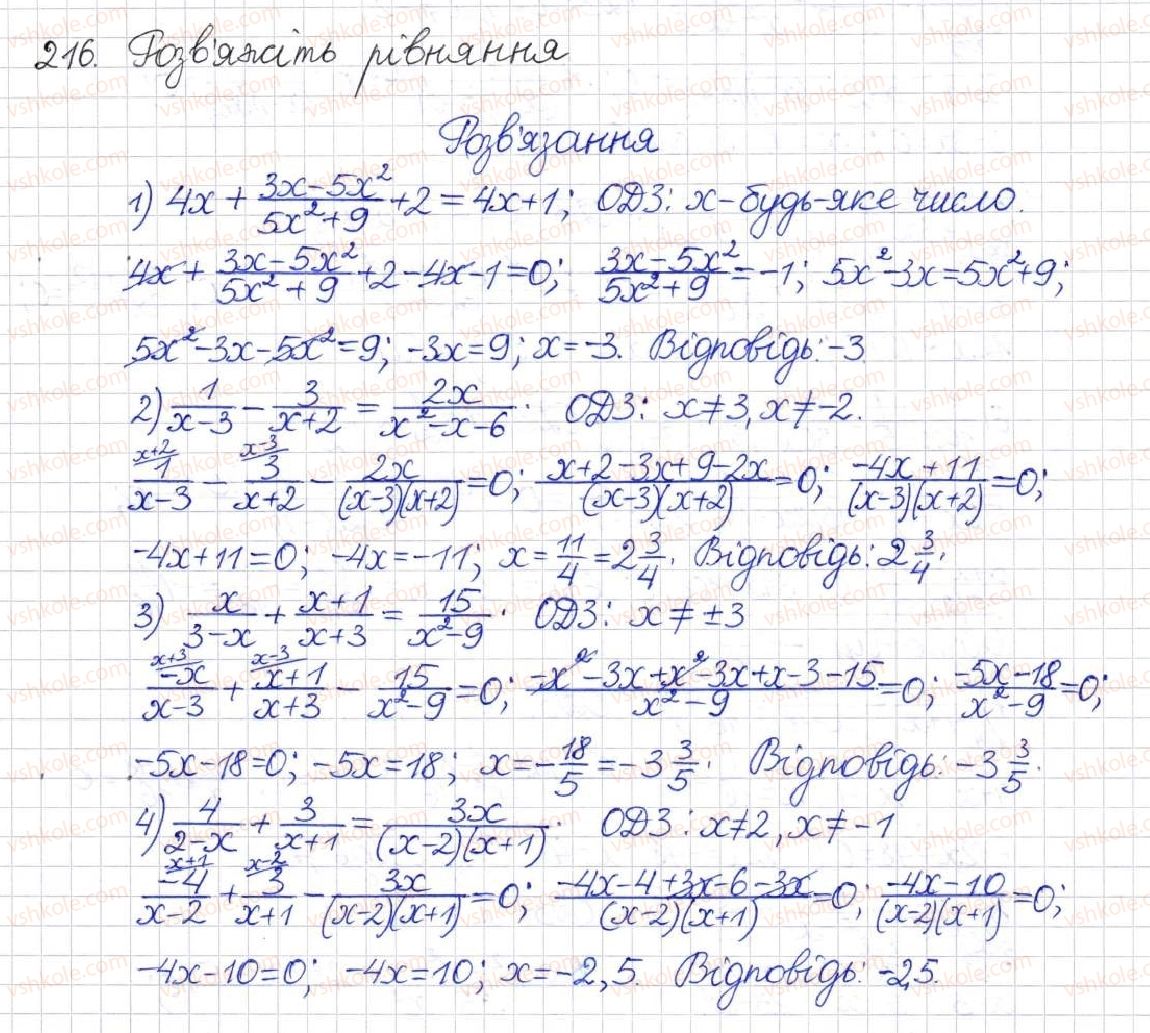 216. Розв'яжіть рівняння
Розв'язання
1) 4x + (3x-5x²)/(5x²+9) + 2 = 4x+1; ОДЗ: x-будь-яке число.
4x + (3x-5x²)/(5x²+9) + 2 - 4x - 1 = 0; (3x-5x²)/(5x²+9) = -1; 5x²-3x=5x²+9;
5x²-3x-5x²=9; -3x=9; x=-3. Відповідь: -3
2) 1/(x-3) - 3/(x+2) = 2x/(x²-x-6). ОДЗ: x≠3, x≠-2.
x+2 x-3
1/(x-3) - 3/(x+2) - 2x/((x-3)(x+2)) = 0; (x+2-3x+9-2x)/((x-3)(x+2)) = 0; (-4x+11)/((x-3)(x+2)) = 0;
-4x+11=0; -4x=-11; x = 11/4 = 2 3/4. Відповідь: 2 3/4.
3) x/(3-x) + (x+1)/(x+3) = 15/(x²-9). ОДЗ: x ≠ ±3
x+3 x-3
-x/(x-3) + (x+1)/(x+3) - 15/(x²-9) = 0; (-x²-3x+x²-3x+x-3-15)/(x²-9) = 0; (-5x-18)/(x²-9) = 0;
-5x-18=0; -5x=18; x = -18/5 = -3 3/5. Відповідь: -3 3/5.
4) 4/(2-x) + 3/(x+1) = 3x/((x-2)(x+1)). ОДЗ: x≠2, x≠-1
x+1 x-2
-4/(x-2) + 3/(x+1) - 3x/((x-2)(x+1)) = 0; (-4x-4+3x-6-3x)/((x-2)(x+1)) = 0; (-4x-10)/((x-2)(x+1)) = 0;
-4x-10=0; -4x=10; x=-2,5. Відповідь: -2,5.